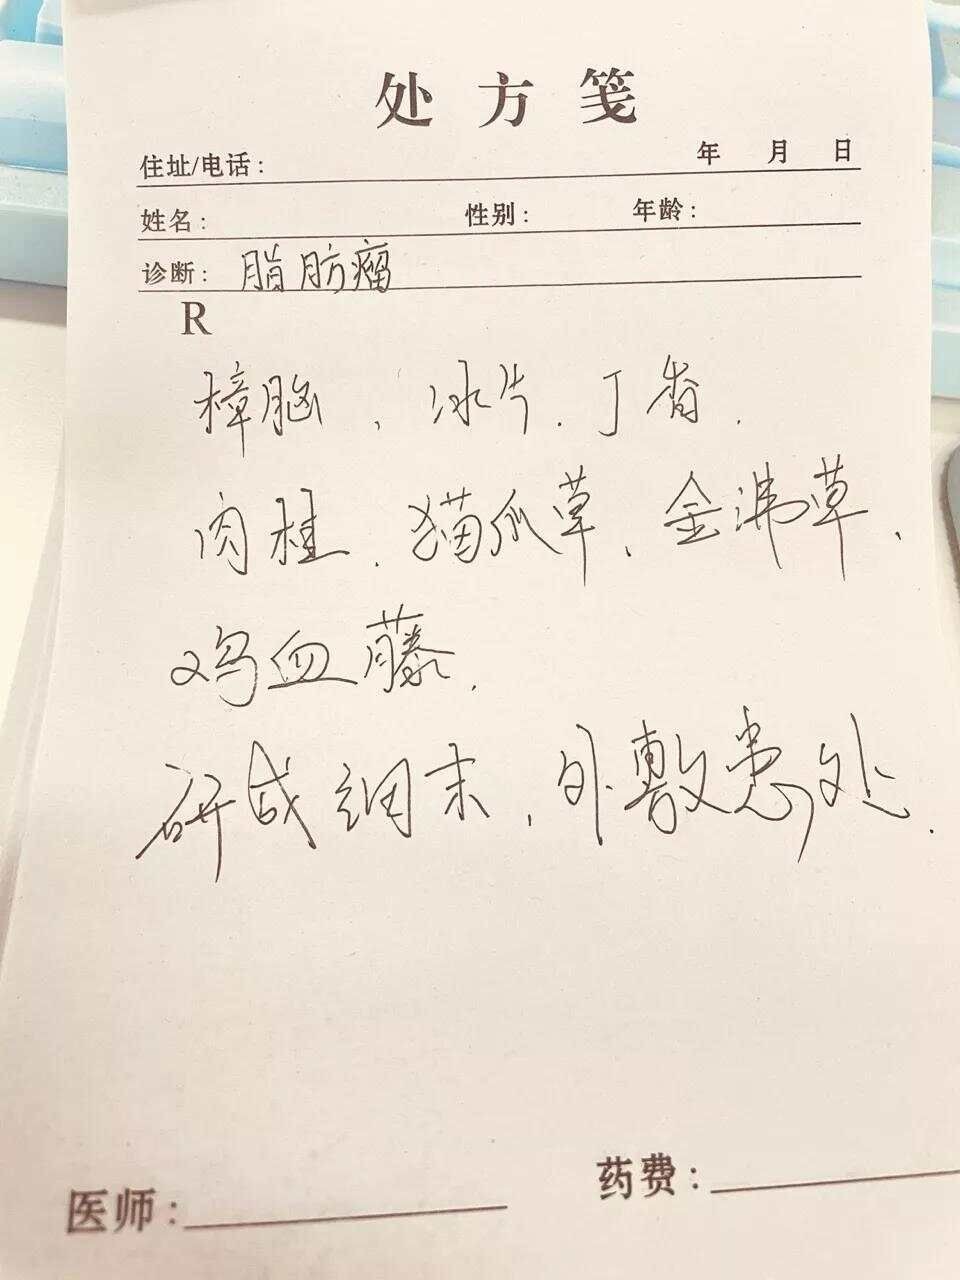 处方笺
住址/电话： 年 月 日
姓名： 性别： 年龄：
诊断：脂肪瘤
R
樟脑、冰片、丁香、
肉桂、猫爪草、金沸草、
鸡血藤、
研成细末，外敷患处.
药费：
医师：